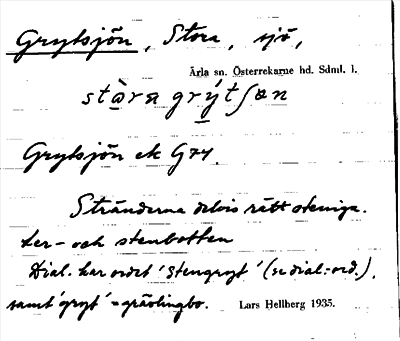 Grytsjön, Stora, sjö,
Ärla sn. Österrekarne hd. Sdml. l.
stòra grýtʃøn
Grytsjön ek G74.
Stränderna delvis rätt steniga.
Ler- och stenbotten
Dial. har ordet 'stengryt' (se dial.-ord.),
samt 'gryt' = grävlingbo. Lars Hellberg 1935.